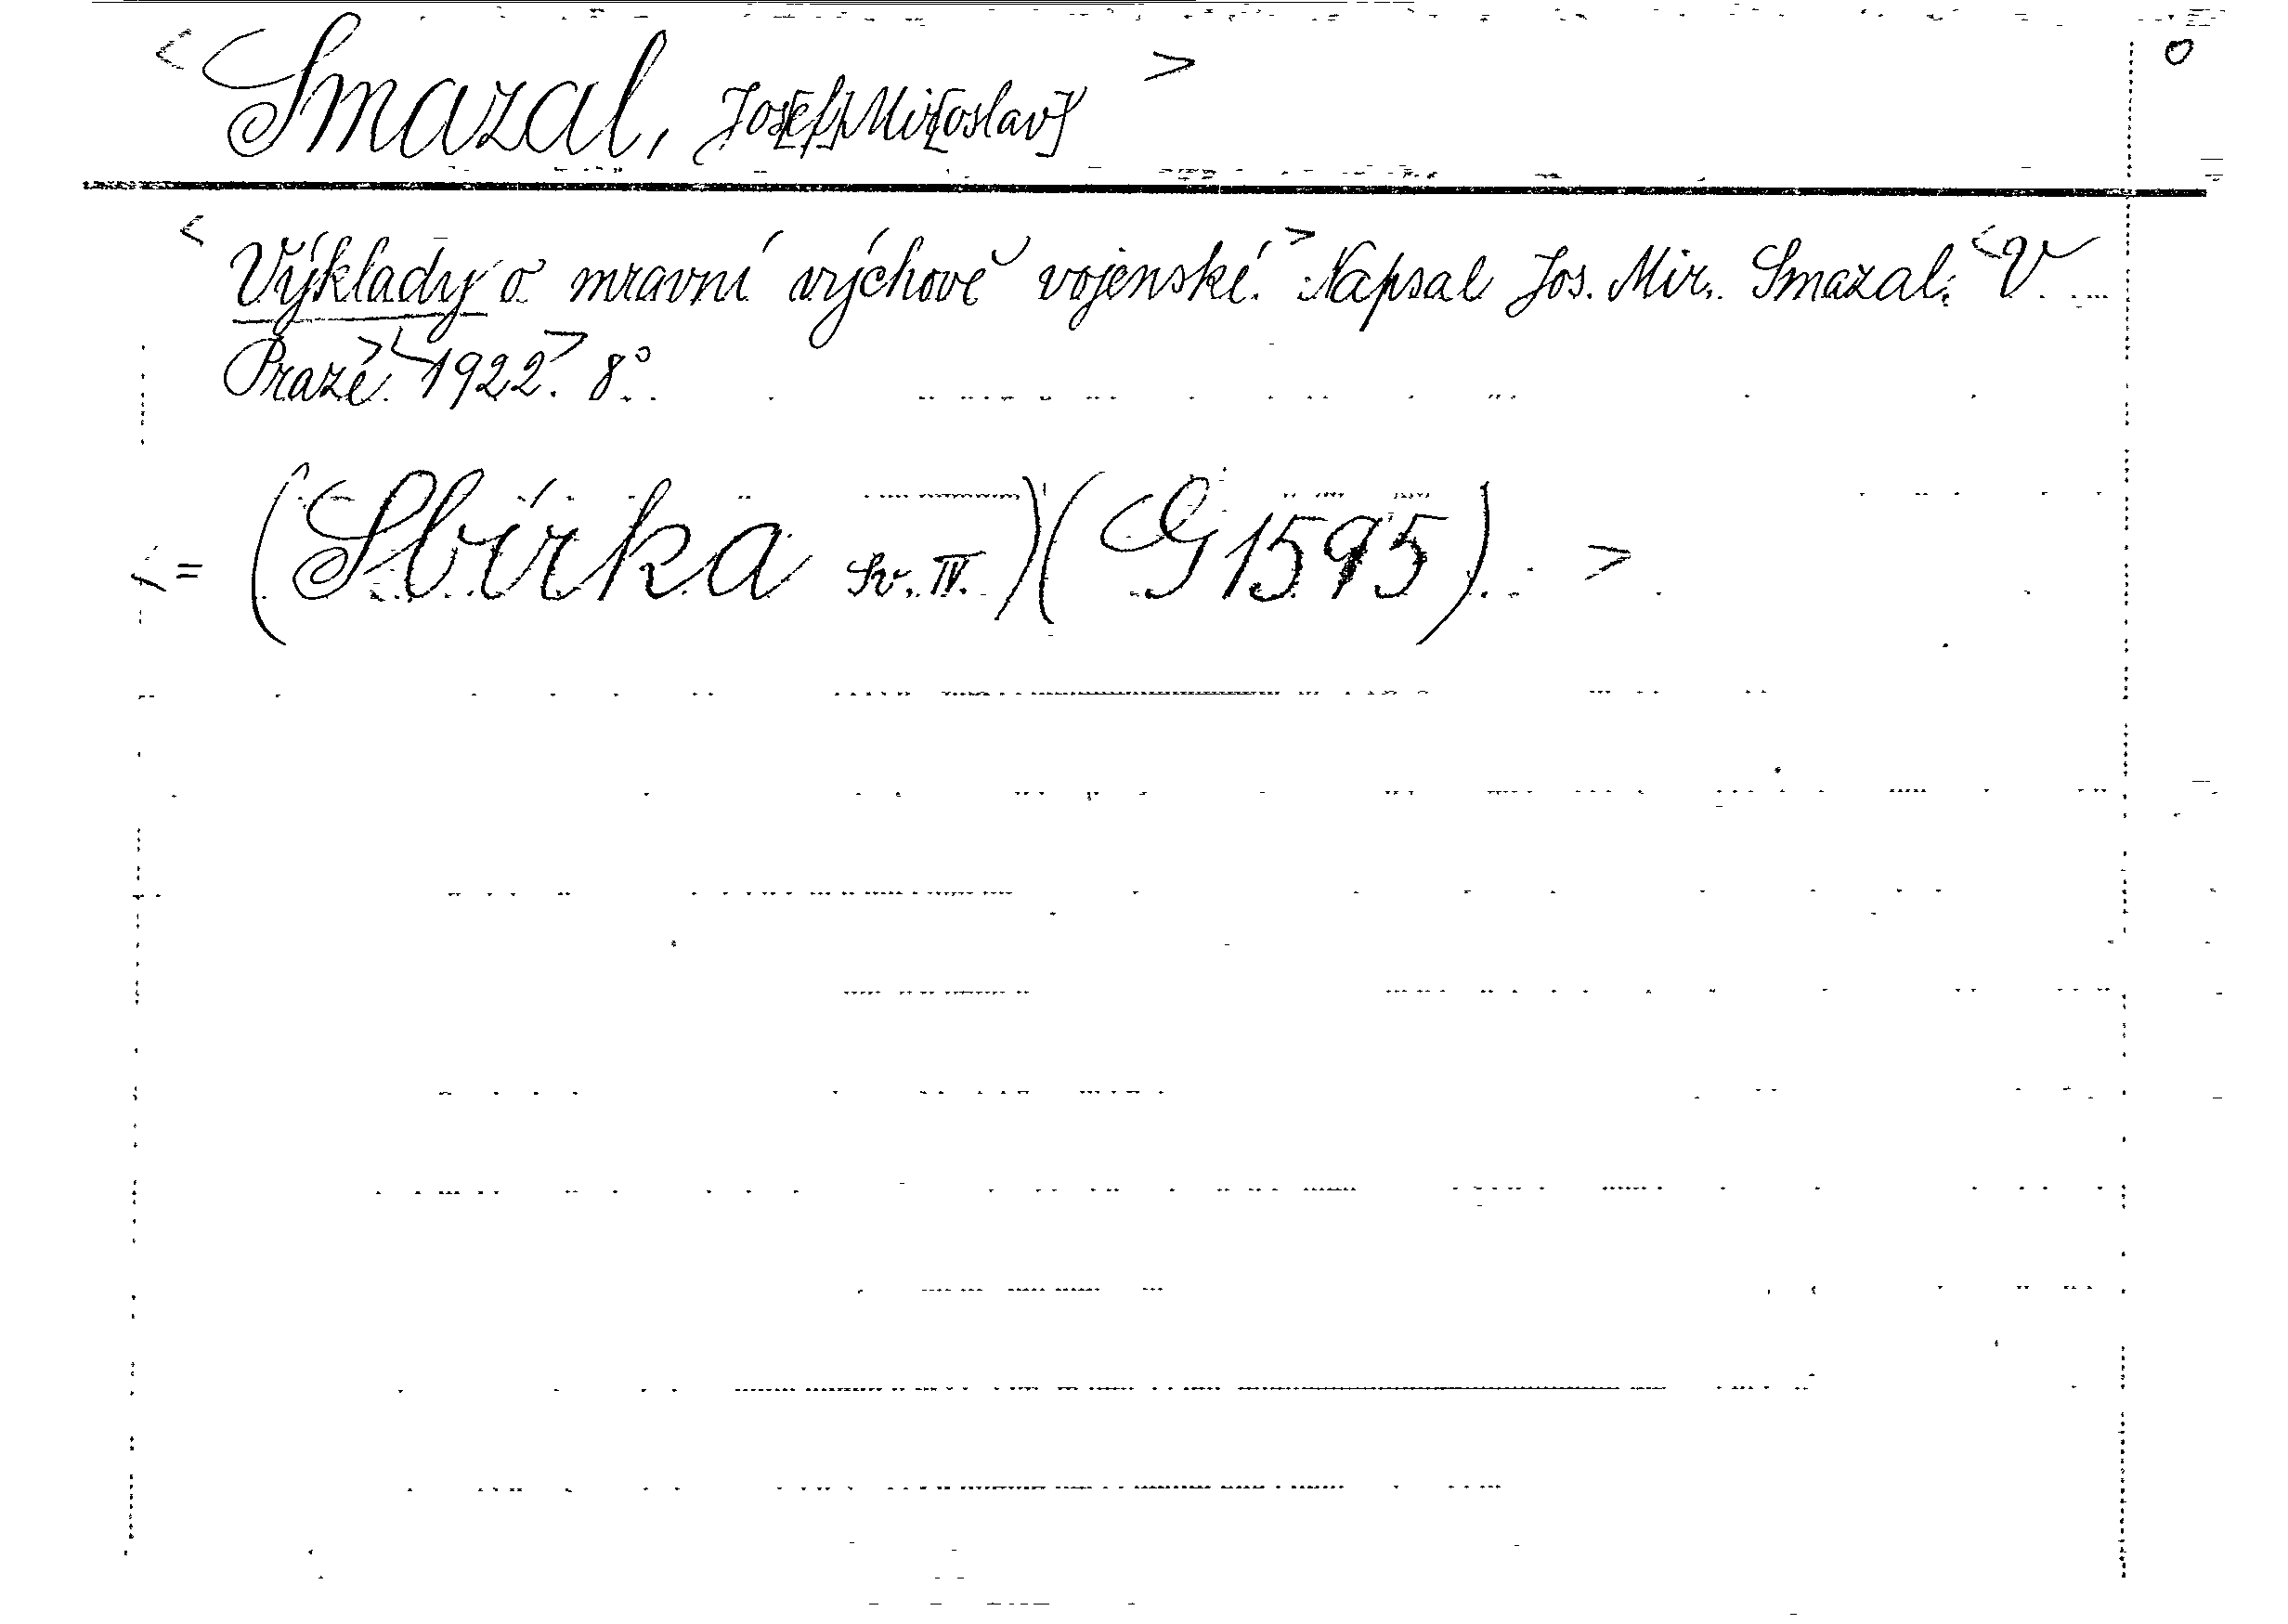 < Smazal, Jos[ef] Mir[oslav] > o
< Výklady o mravní výchově vojenské. > Napsal Jos. Mir. Smazal. < V
Praze. > < 1922. > 8°.
< = (Sbírka Sv. IV.) (G 1595). >